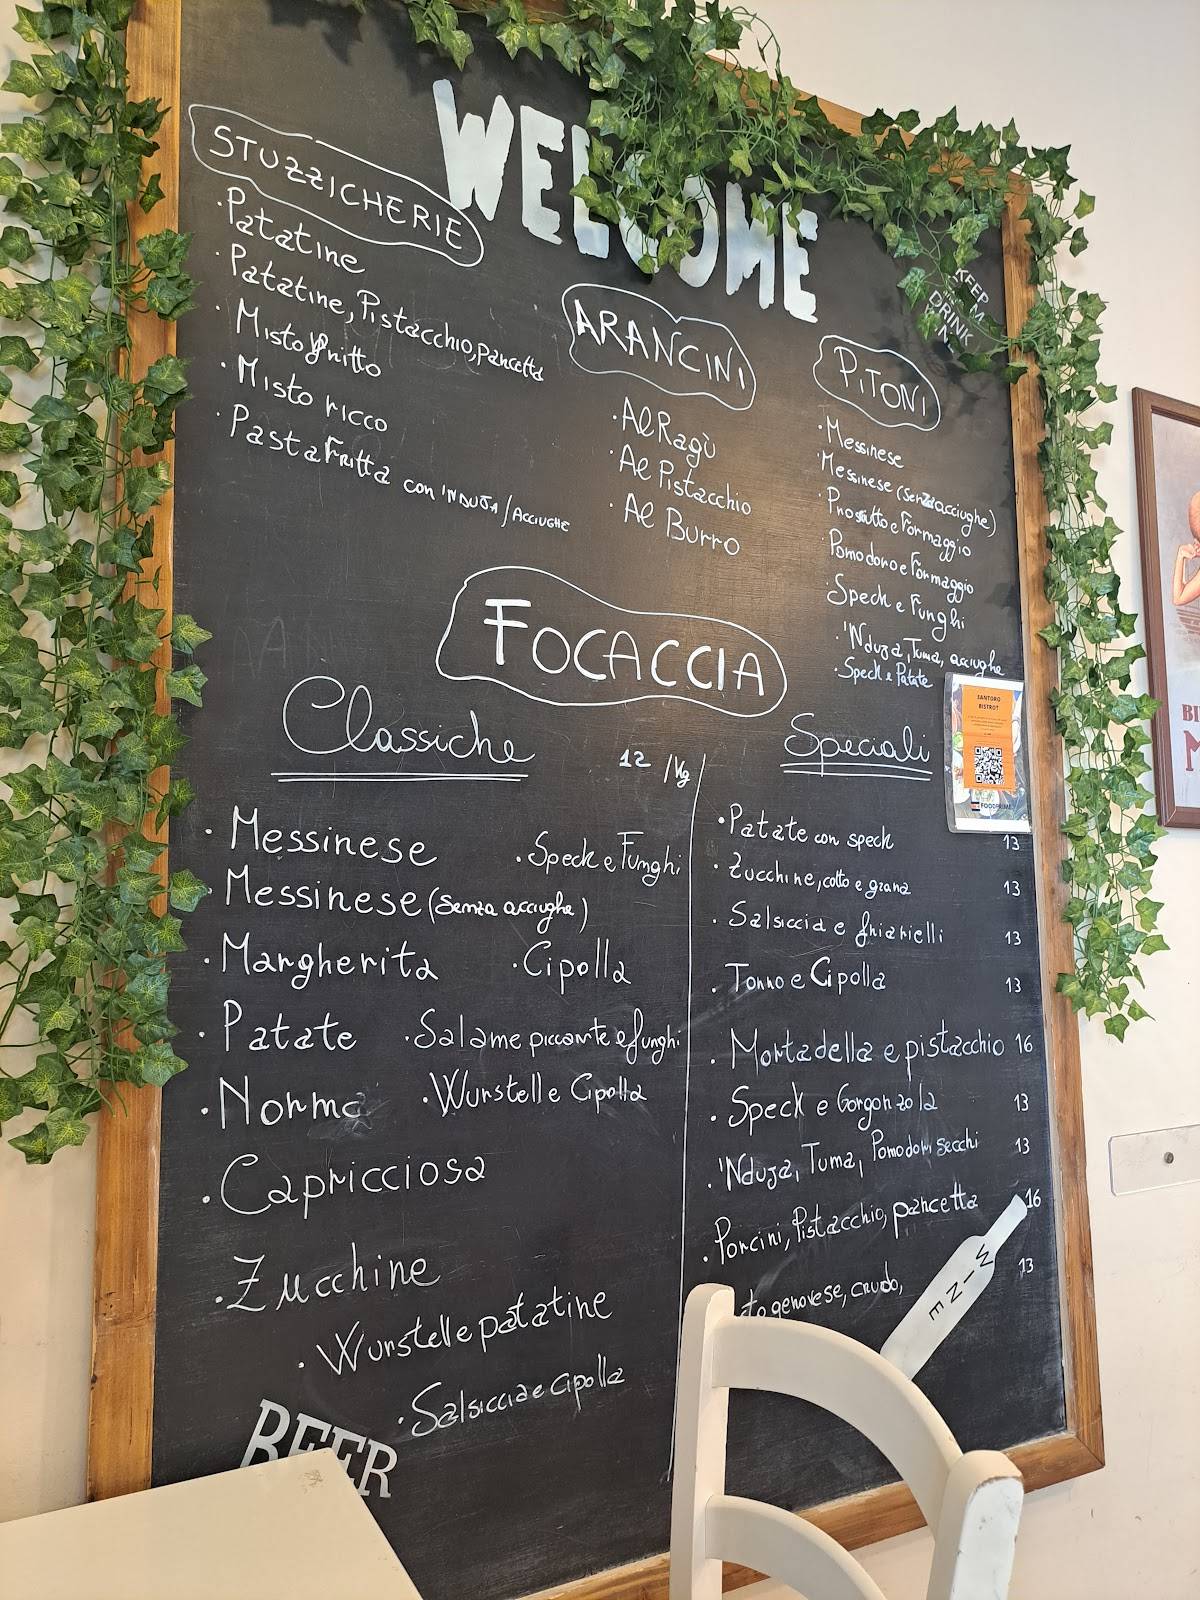 WELCOME
KEEP
DRINK
STUZZICHERIE
· Patatine
· Patatine, Pistacchio, pancetta
· Misto fritto
· Misto ricco
· Pasta Fritta con 'NDUJA / ACCIUGHE
ARANCINI
· Al Ragù
· Al Pistacchio
· Al Burro
PITONI
· Messinese
· Messinese (senza acciughe)
· Prosciutto e Formaggio
· Pomodoro e Formaggio
· Speck e Funghi
· 'Nduja, Tuma, acciughe
· Speck e Patate
SANTORO
BISTROT
FOODPRIME
FOCACCIA
Classiche 12 /Kg
· Messinese · Speck e Funghi
· Messinese (senza acciughe)
· Margherita · Cipolla
· Patate · Salame piccante e funghi
· Norma · Wurstel e Cipolla
· Capricciosa
· Zucchine
· Wurstel e patatine
· Salsiccia e cipolla
BEER
Speciali
· Patate con speck 13
· Zucchine, cotto e grana 13
· Salsiccia e friarielli 13
· Tonno e Cipolla 13
· Mortadella e pistacchio 16
· Speck e Gorgonzola 13
· 'Nduja, Tuma, Pomodori secchi 13
· Porcini, Pistacchio, pancetta 16
genovese, crudo, 13
WINE
BI
M